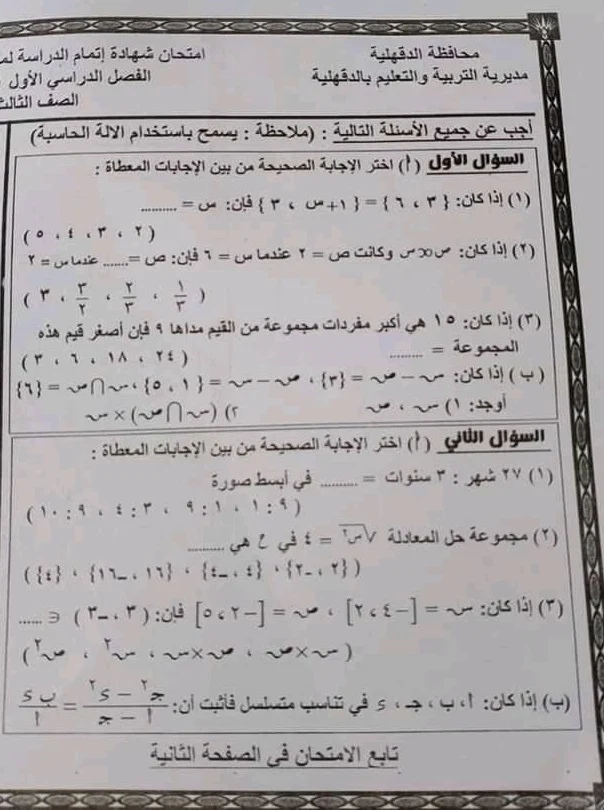 محافظة الدقهلية
امتحان شهادة إتمام الدراسة
مديرية التربية والتعليم بالدقهلية
الفصل الدراسي الأول
الصف الثالث
أجب عن جميع الأسئلة التالية : (ملاحظة : يسمح باستخدام الالة الحاسبة)
السؤال الأول (أ) اختر الإجابة الصحيحة من بين الإجابات المعطاة :
(١) إذا كان: {٣ ، ٦} = {س+١ ، ٣} فإن: س = .........
(٢ ، ٣ ، ٤ ، ٥)
(٢) إذا كان: ص ∝ س وكانت ص = ٢ عندما س = ٦ فإن: ص =...... عندما س = ٢
(١/٣ ، ٢/٣ ، ٣/٢ ، ٣)
(٣) إذا كان: ١٥ هي أكبر مفردات مجموعة من القيم مداها ٩ فإن أصغر قيم هذه
المجموعة = ........
(٢٤ ، ١٨ ، ٦ ، ٣)
(ب) إذا كان: س - ص = {٣} ، ص - س = {١ ، ٥} ، س ∩ ص = {٦}
أوجد: ١) س ، ص ٢) (س ∩ ص) × س
السؤال الثاني (أ) اختر الإجابة الصحيحة من بين الإجابات المعطاة :
(١) ٢٧ شهر : ٣ سنوات = ......... في أبسط صورة
(٩ : ١ ، ١ : ٩ ، ٣ : ٤ ، ٩ : ١٠)
(٢) مجموعة حل المعادلة √س² = ٤ في ح هي .........
({٢ ، -٢} ، {٤ ، -٤} ، {١٦ ، -١٦} ، {٤})
(٣) إذا كان: س = [-٤ ، ٢] ، ص = [-٢ ، ٥] فإن: (٣ ، -٣) ∈ .....
(س × ص ، ص × س ، س² ، ص²)
(ب) إذا كان: أ ، ب ، جـ ، د في تناسب متسلسل فأثبت أن: (جـ² - د²)/(أ - جـ) = ب د/أ
تابع الامتحان في الصفحة الثانية